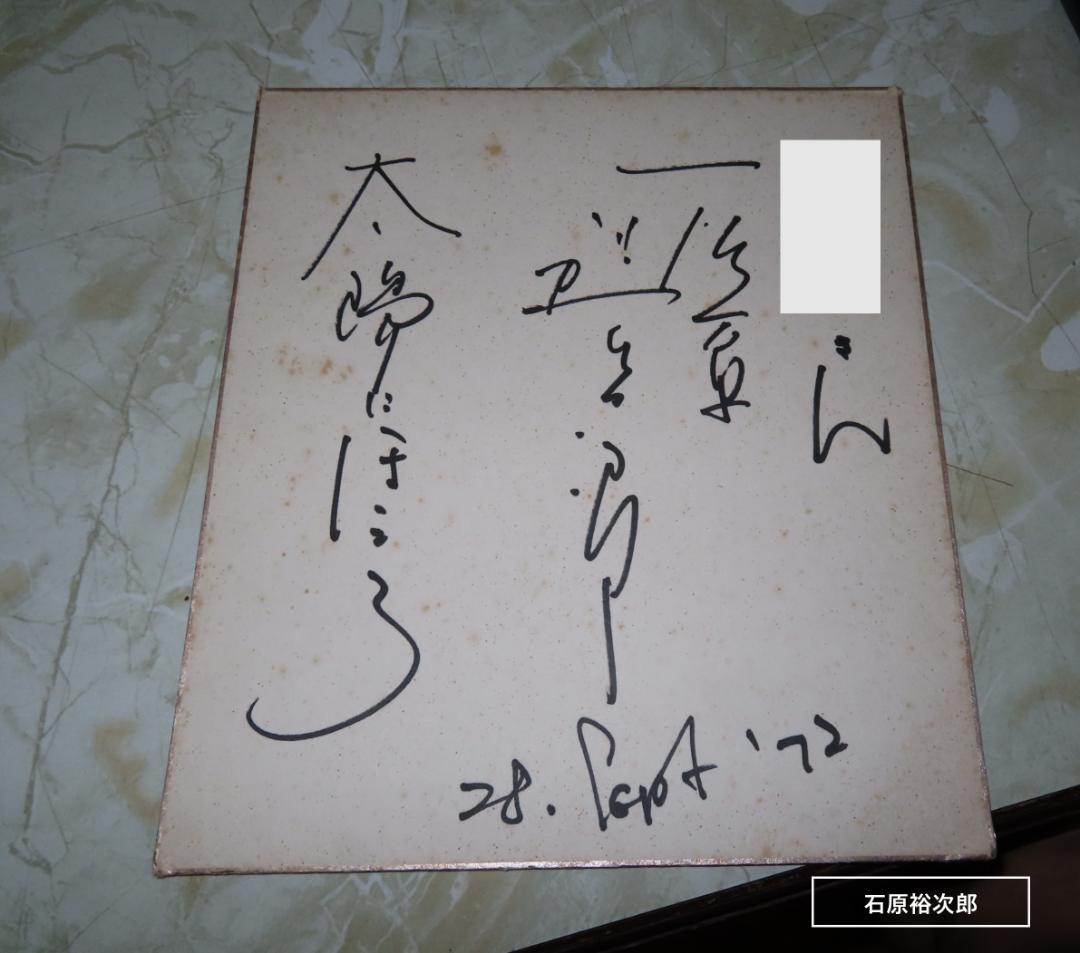 さん
石原
裕次郎
太陽にほえろ
28. Sept '72
石原裕次郎